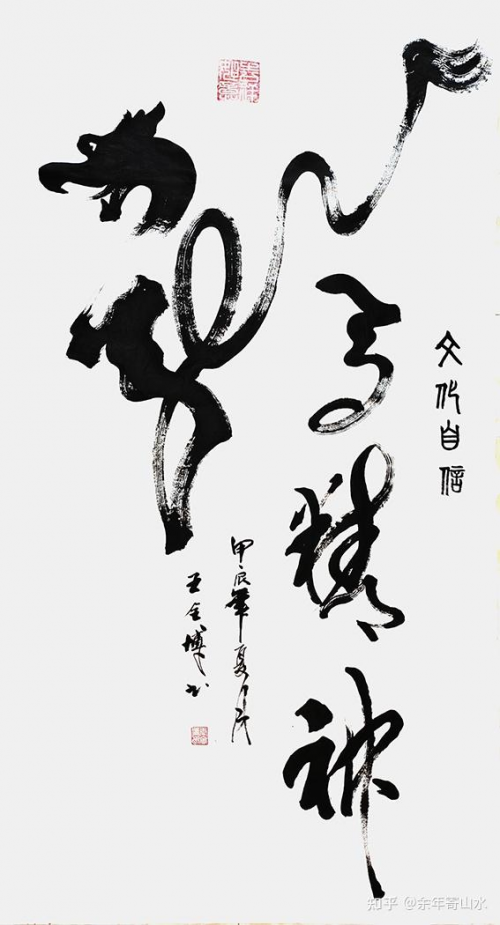 文化自信
龙马精神
甲辰年夏月
王全博书
知乎 @余年寄山水